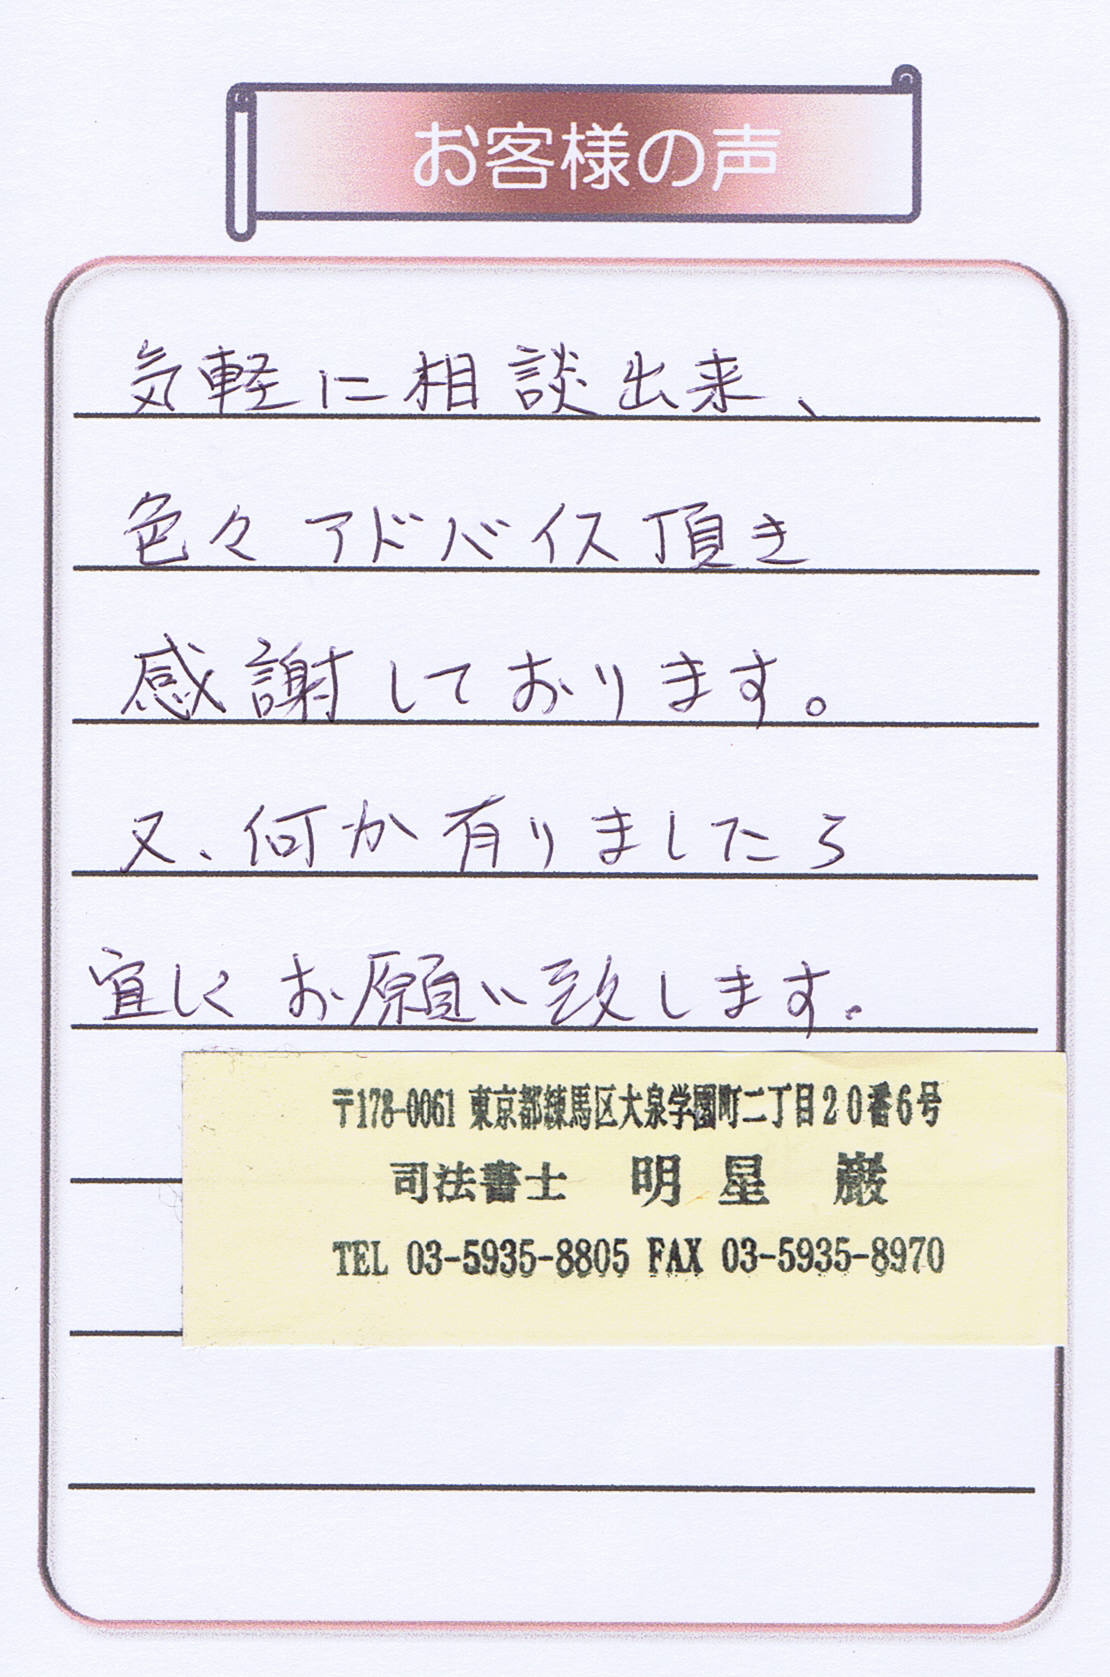 お客様の声
気軽に相談出来、
色々アドバイス頂き
感謝しております。
又、何か有りましたら
宜しくお願い致します。
〒178-0061 東京都練馬区大泉学園町二丁目20番6号
司法書士 明星 巌
TEL 03-5935-8805 FAX 03-5935-8970